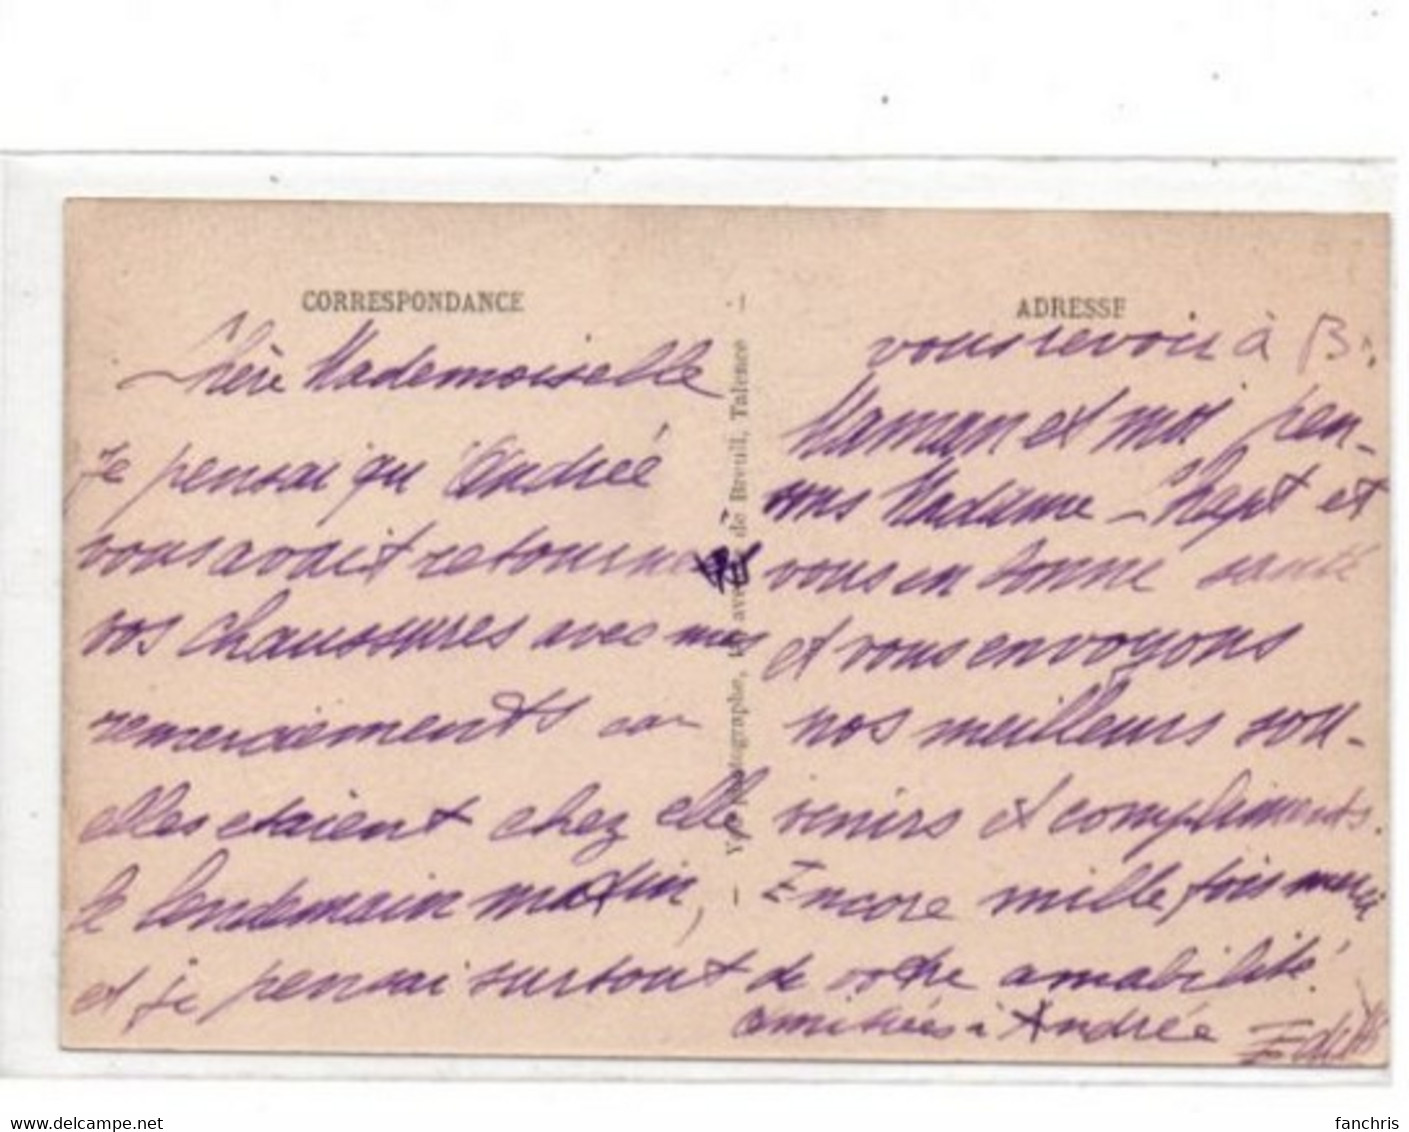 CORRESPONDANCE
Chère Mademoiselle
Je pensai qu'Andrée
vous avait retourné
vos chaussures avec mes
remerciements car
elles etaient chez elle
le lendemain matin,
et je pensai surtout
ADRESSE
vous revoir à B.
Maman et moi pen-
sons Madame Chapt et
vous en bonne santé
et vous envoyons
nos meilleurs sou-
venirs et compliments.
Encore mille fois merci
de votre amabilité!
amitiées à Andrée
Edith
de Breuil, Talence
www.delcampe.net
fanchris